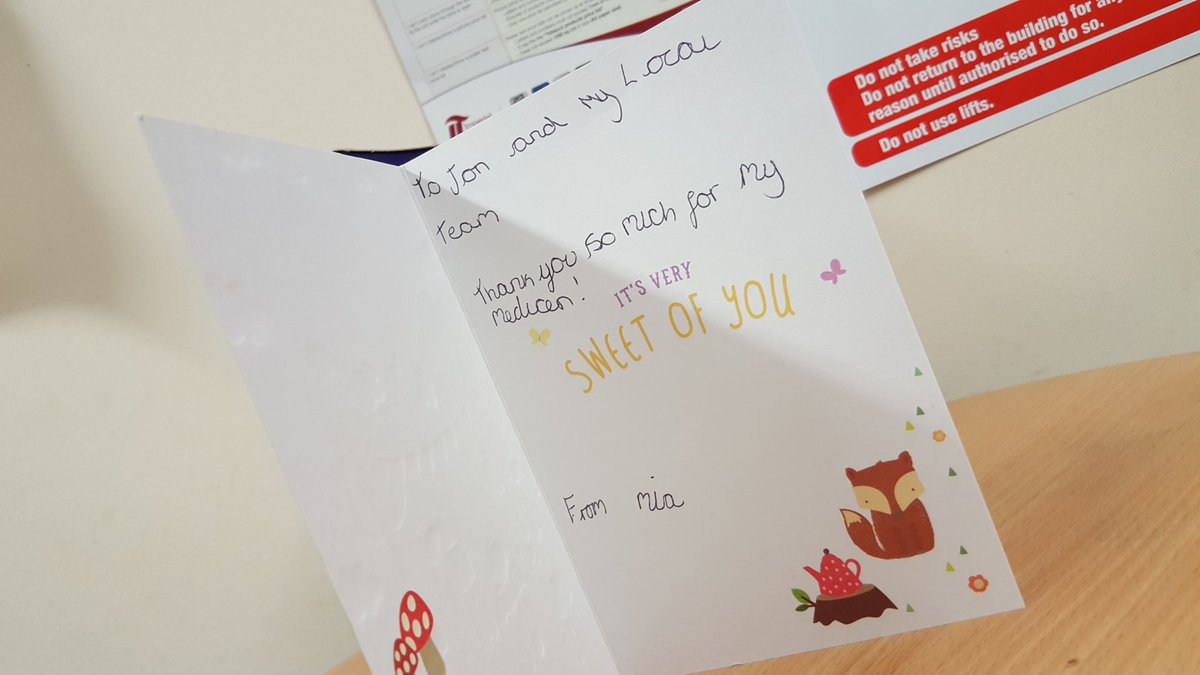 Do not take risks
Do not return to the building for any
reason until authorised to do so.
Do not use lifts.
To Jon and My Local
Team
Thank you so much for My
Medicen!
IT'S VERY
SWEET OF YOU
From Mia